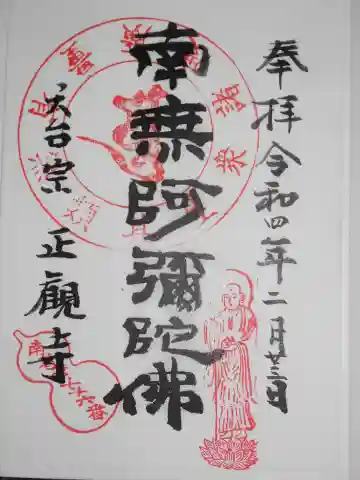 奉拝 令和四年二月廿三日
南無阿彌陀佛
天台宗 正觀寺